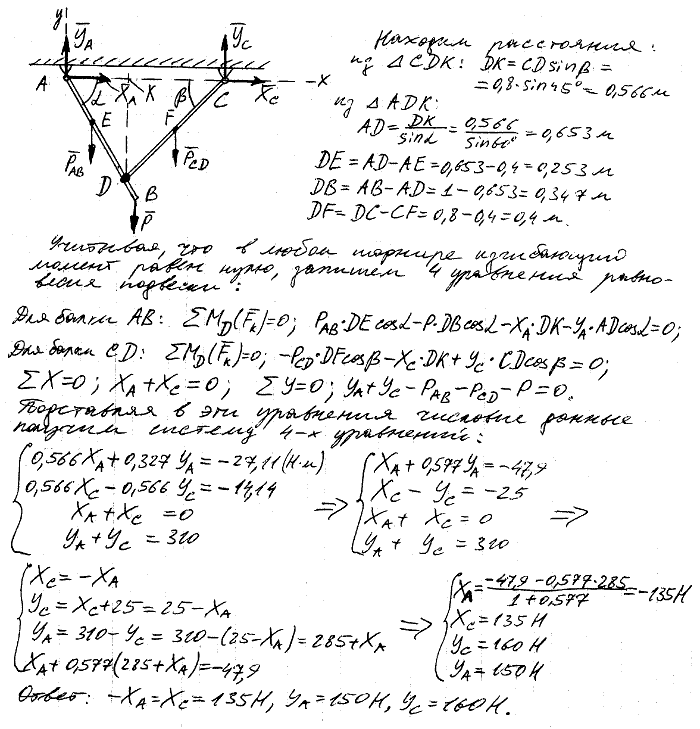 y
Y̅_A
Y̅_C
A
α
X̅_A
K
β
C
X̅_C
x
E
F
P̅_AB
P̅_CD
D
B
P̅
Находим расстояния:
из △CDK: DK = CD sinβ =
= 0,8·sin45° = 0,566 м
из △ADK:
AD = DK/sinα = 0,566/sin60° = 0,653 м
DE = AD – AE = 0,653 – 0,4 = 0,253 м
DB = AB – AD = 1 – 0,653 = 0,347 м
DF = DC – CF = 0,8 – 0,4 = 0,4 м.
Учитывая, что в любом шарнире изгибающий
момент равен нулю, запишем 4 уравнения равно-
весия подвески:
Для балки AB: ΣM_D(F̅_k)=0; P_AB·DE cosα – P·DB cosα – X_A·DK – Y_A·AD cosα = 0;
Для балки CD: ΣM_D(F̅_k)=0; –P_CD·DF cosβ – X_C·DK + Y_C·CD cosβ = 0;
ΣX=0; X_A + X_C = 0; ΣY=0; Y_A + Y_C – P_AB – P_CD – P = 0.
Подставляя в эти уравнения числовые данные
получим систему 4-х уравнений:
0,566 X_A + 0,327 Y_A = –27,11 (Н·м)
0,566 X_C – 0,566 Y_C = –14,14
X_A + X_C = 0
Y_A + Y_C = 310
⇒
X_A + 0,577 Y_A = –47,9
X_C – Y_C = –25
X_A + X_C = 0
Y_A + Y_C = 310
⇒
X_C = –X_A
Y_C = X_C + 25 = 25 – X_A
Y_A = 310 – Y_C = 310 – (25 – X_A) = 285 + X_A
X_A + 0,577(285 + X_A) = –47,9
⇒
X_A = (–47,9 – 0,577·285)/(1 + 0,577) = –135 Н
X_C = 135 Н
Y_C = 160 Н
Y_A = 150 Н
Ответ: –X_A = X_C = 135 Н, Y_A = 150 Н, Y_C = 160 Н.